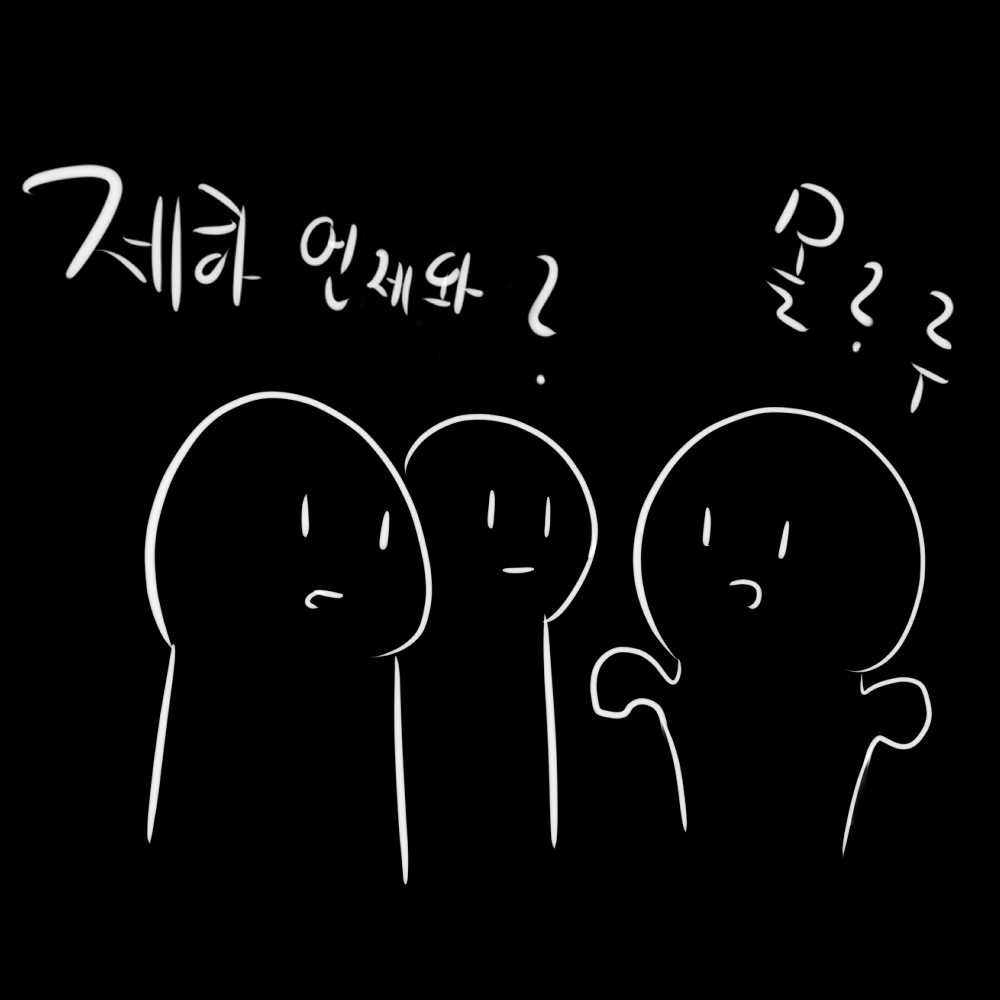 제하 언제와?
몰?루